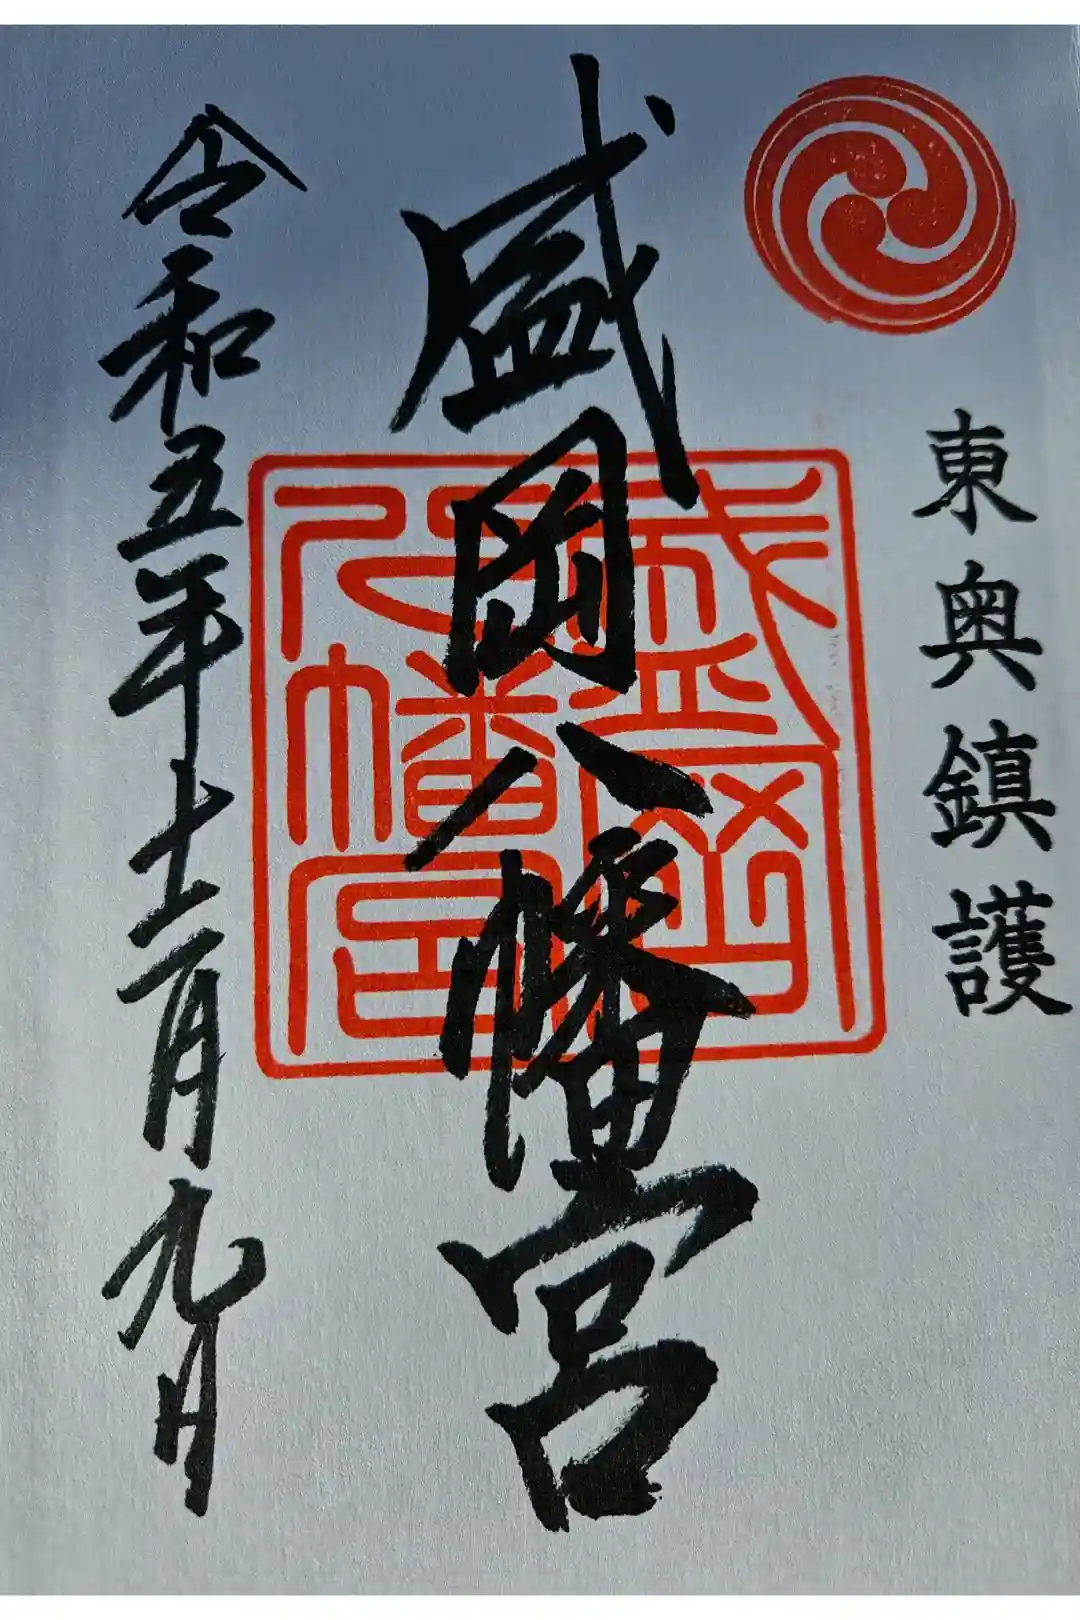 東奥鎮護
盛岡八幡宮
盛岡
八幡宮
令和五年十二月九日